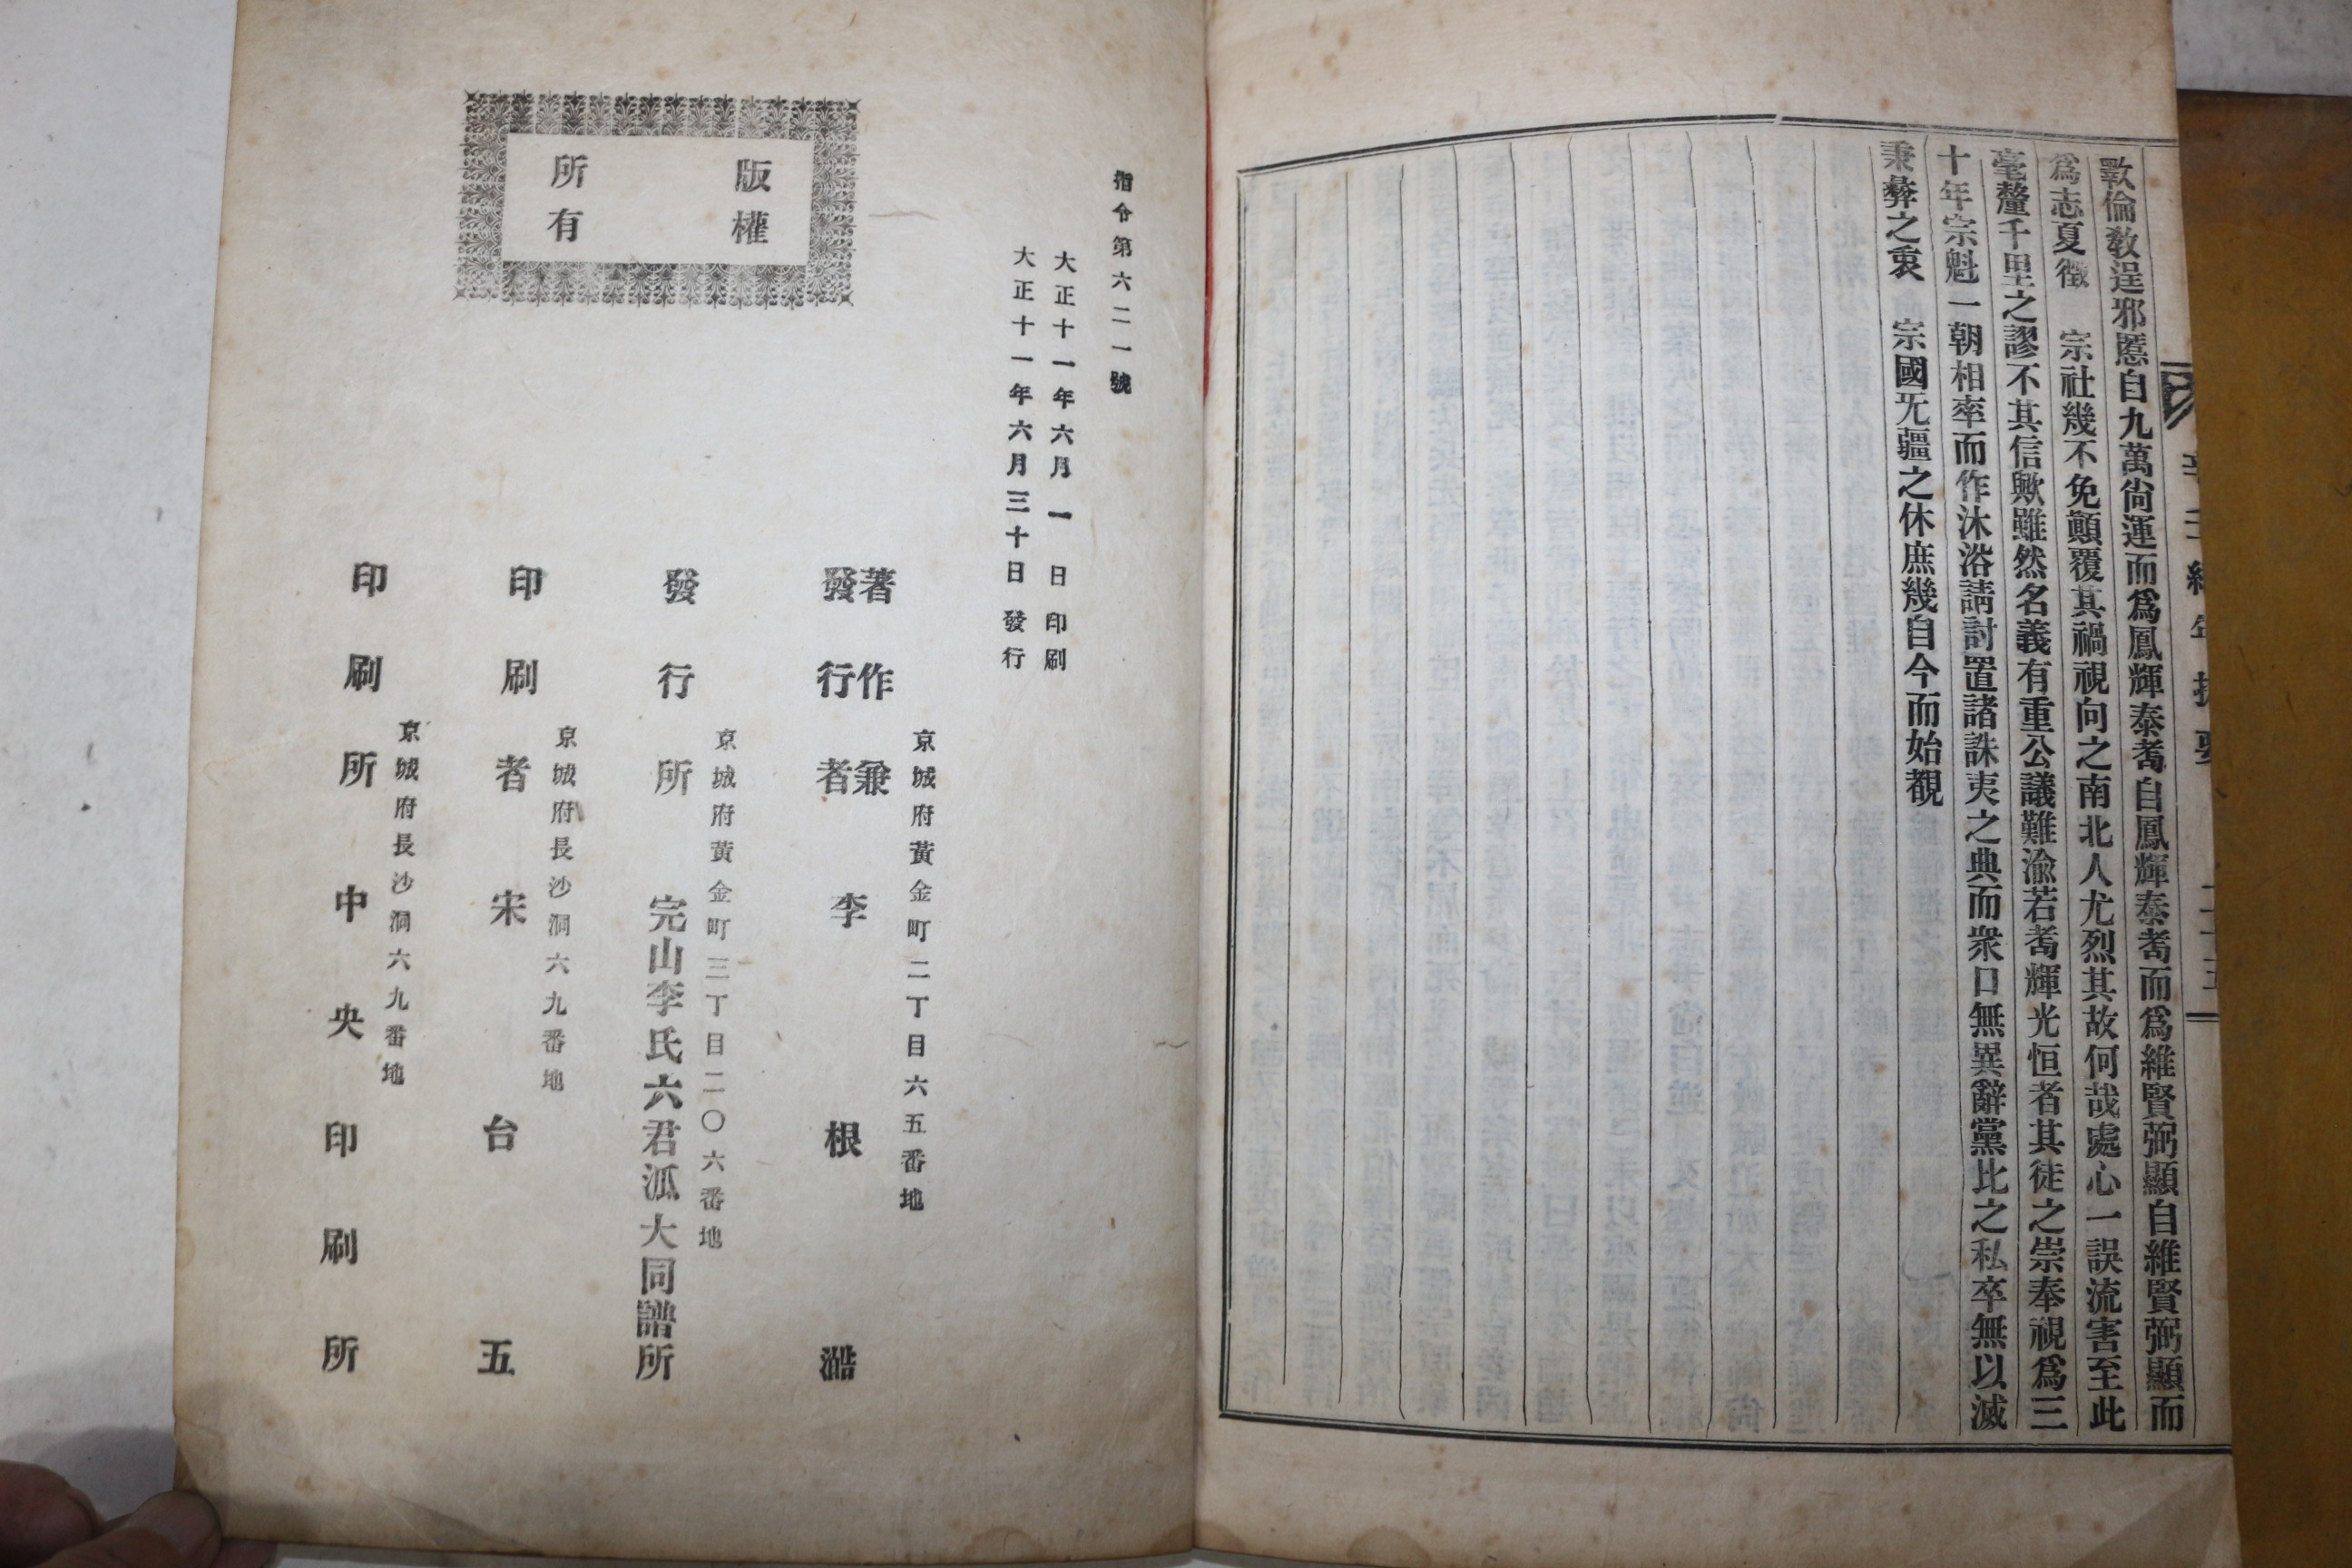 斁倫敎逞邪慝自九萬尙運而爲鳳輝泰耉自鳳輝泰耉而爲維賢弼顯自維賢弼顯而
爲志夏徵　宗社幾不免顚覆其禍視向之南北人尤烈其故何哉處心一誤流害至此
毫釐千里之謬不其信歟雖然名義有重公議難渝若耉輝光恒者其徒之崇奉視爲三
十年宗魁一朝相率而作沐浴請討置諸誅夷之典而衆口無異辭黨比之私卒無以滅
秉彝之衷　宗國无疆之休庶幾自今而始覩
指令第六二一號
大正十一年六月一日印刷
大正十一年六月三十日發行
版權
所有
京城府黃金町二丁目六五番地
著作兼
發行者 李根澔
京城府黃金町三丁目二〇六番地
發行所 完山李氏六君派大同譜所
京城府長沙洞六九番地
印刷者 宋台五
京城府長沙洞六九番地
印刷所 中央印刷所